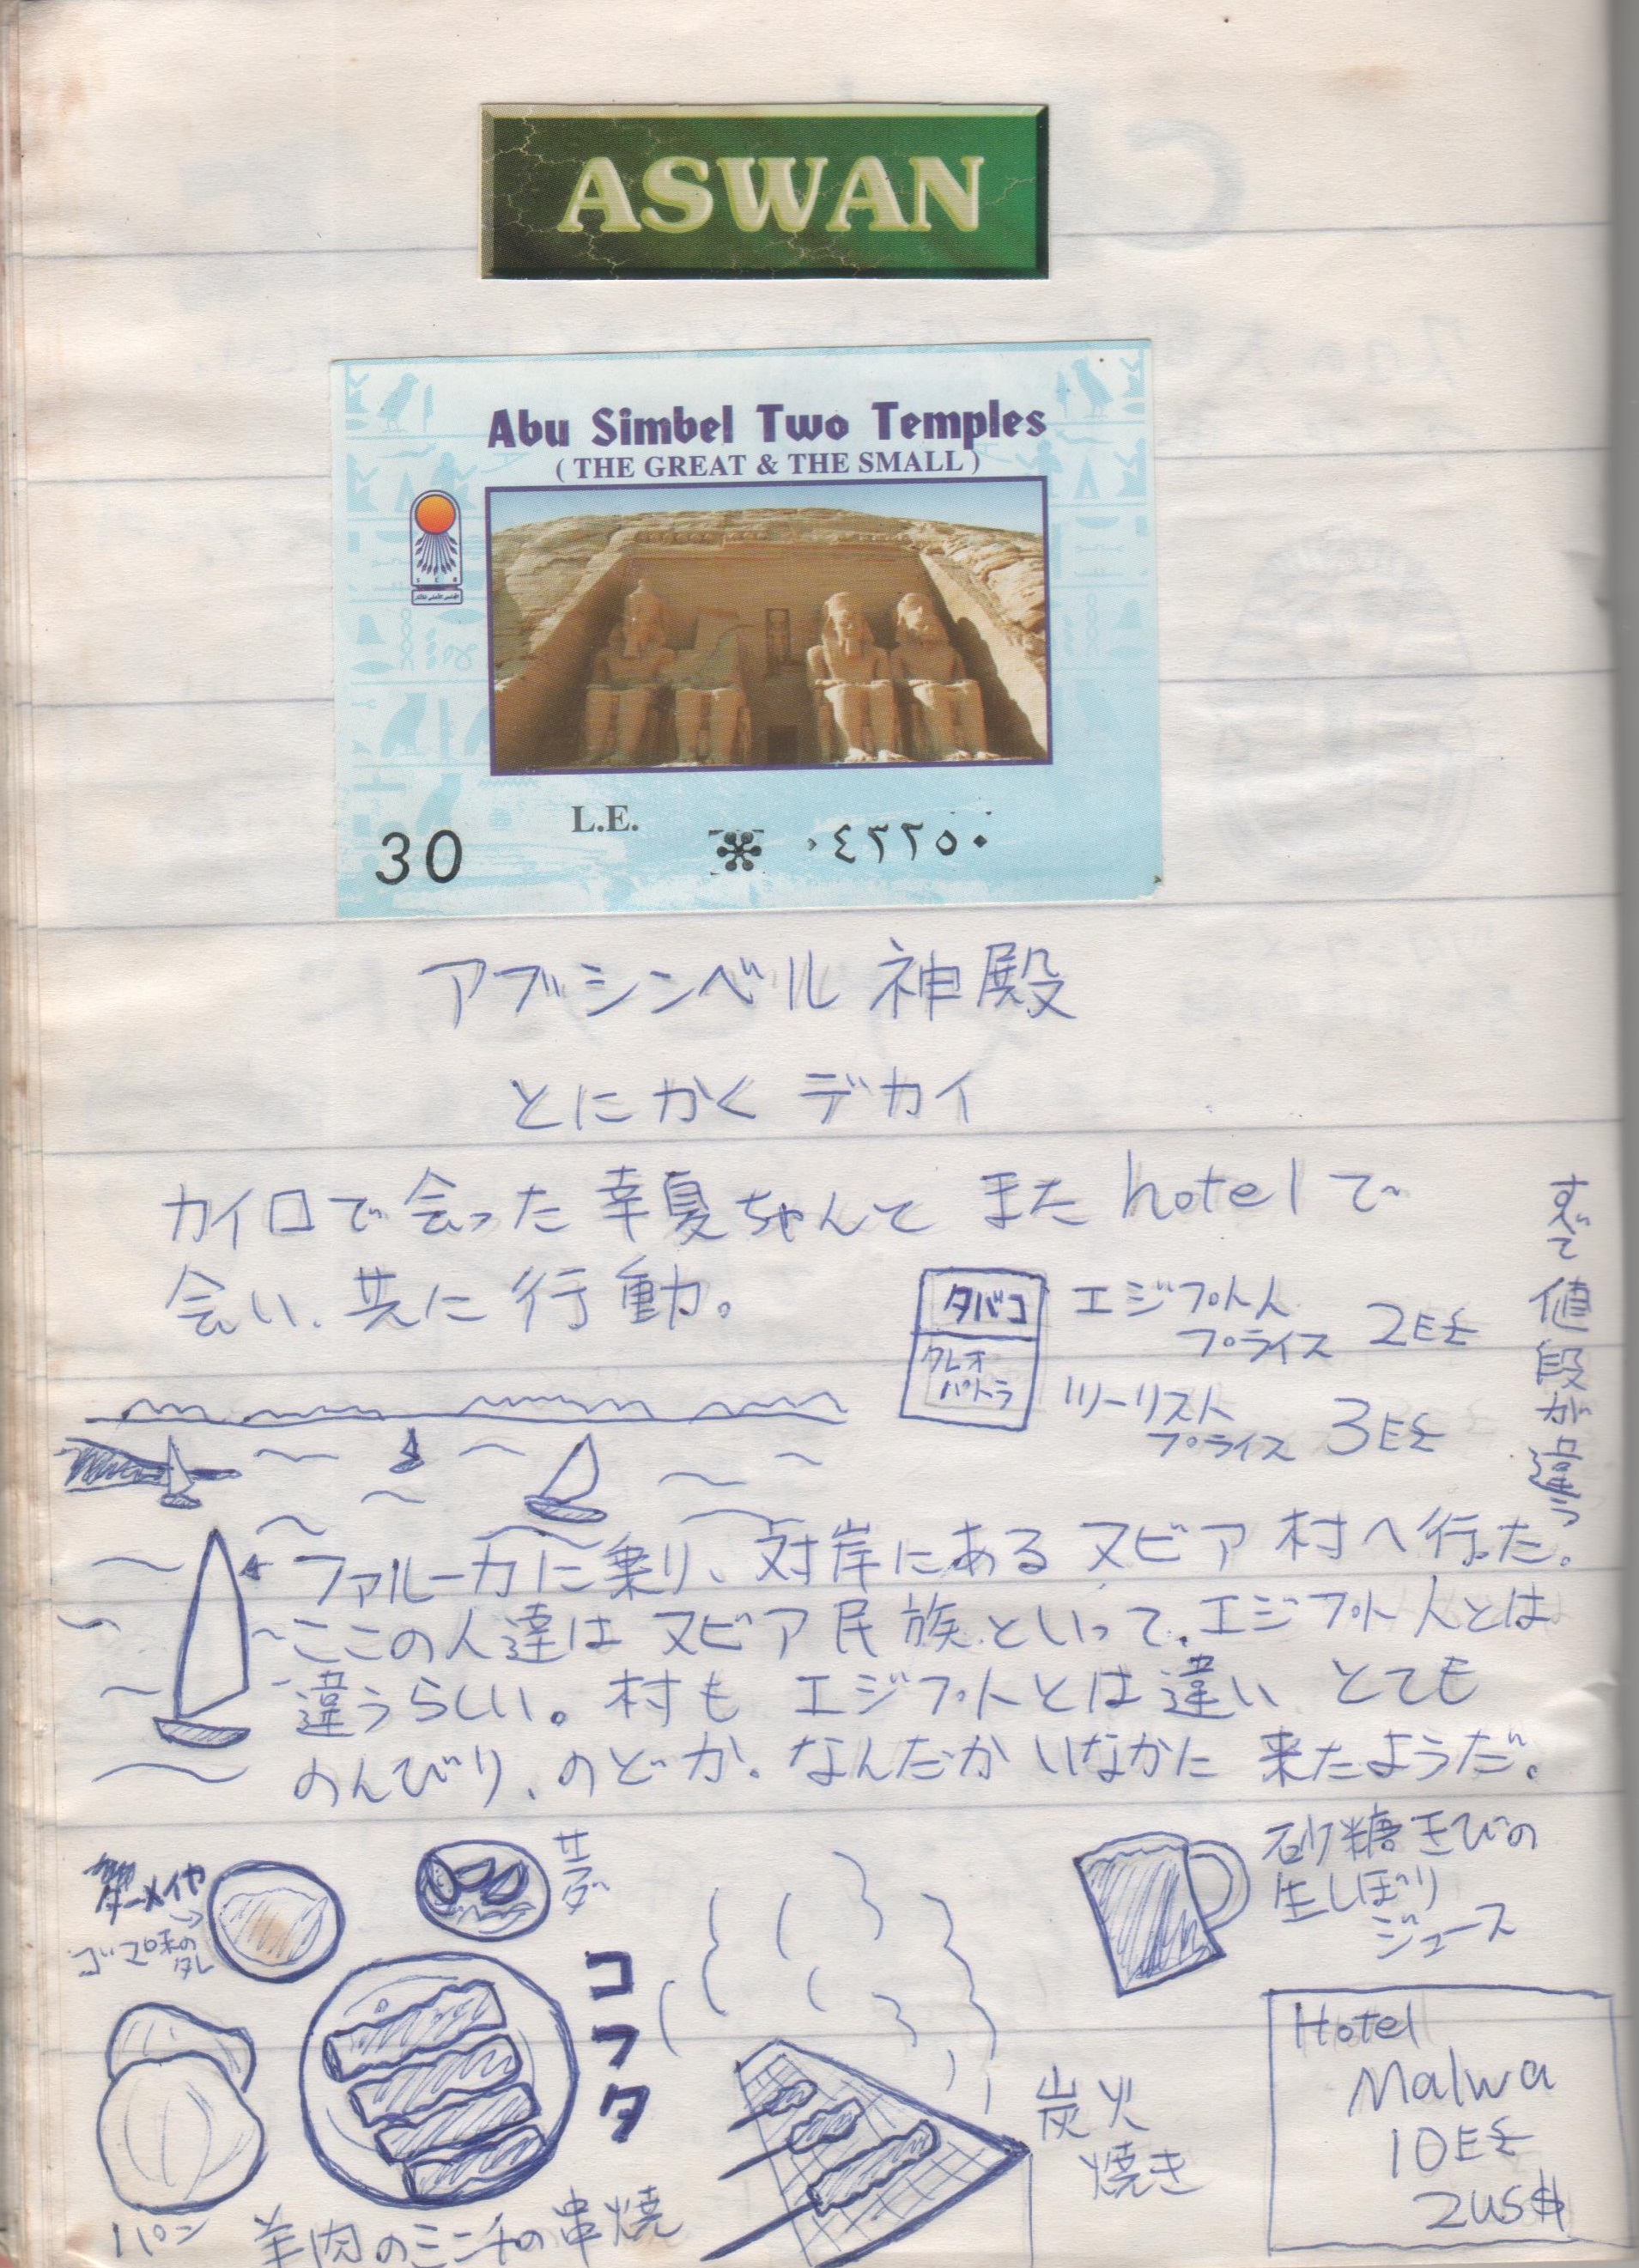 ASWAN
Abu Simbel Two Temples
( THE GREAT & THE SMALL )
L.E.
30
٠٤٣٢٥٠
アブシンベル 神殿
とにかく デカイ
カイロで 会った 幸夏ちゃんと また hotel で
会い、共に 行動。
タバコ
クレオ
パトラ
エジプト人
プライス 2E£
ツーリスト
プライス 3E£
すべて 値段が 違う
ファルーカに乗り、対岸にある ヌビア 村へ行った。
ここの人達は ヌビア 民族といって、エジプト人とは
違うらしい。村も エジプトとは違い とても
のんびり、のどか。なんだか いなかに 来たようだ。
ターメイヤ
ゴマ味の
タレ
サラダ
コフタ
パン
羊肉のミンチの串焼
炭火
焼き
砂糖きびの
生しぼり
ジュース
Hotel
Malwa
10E£
2US$